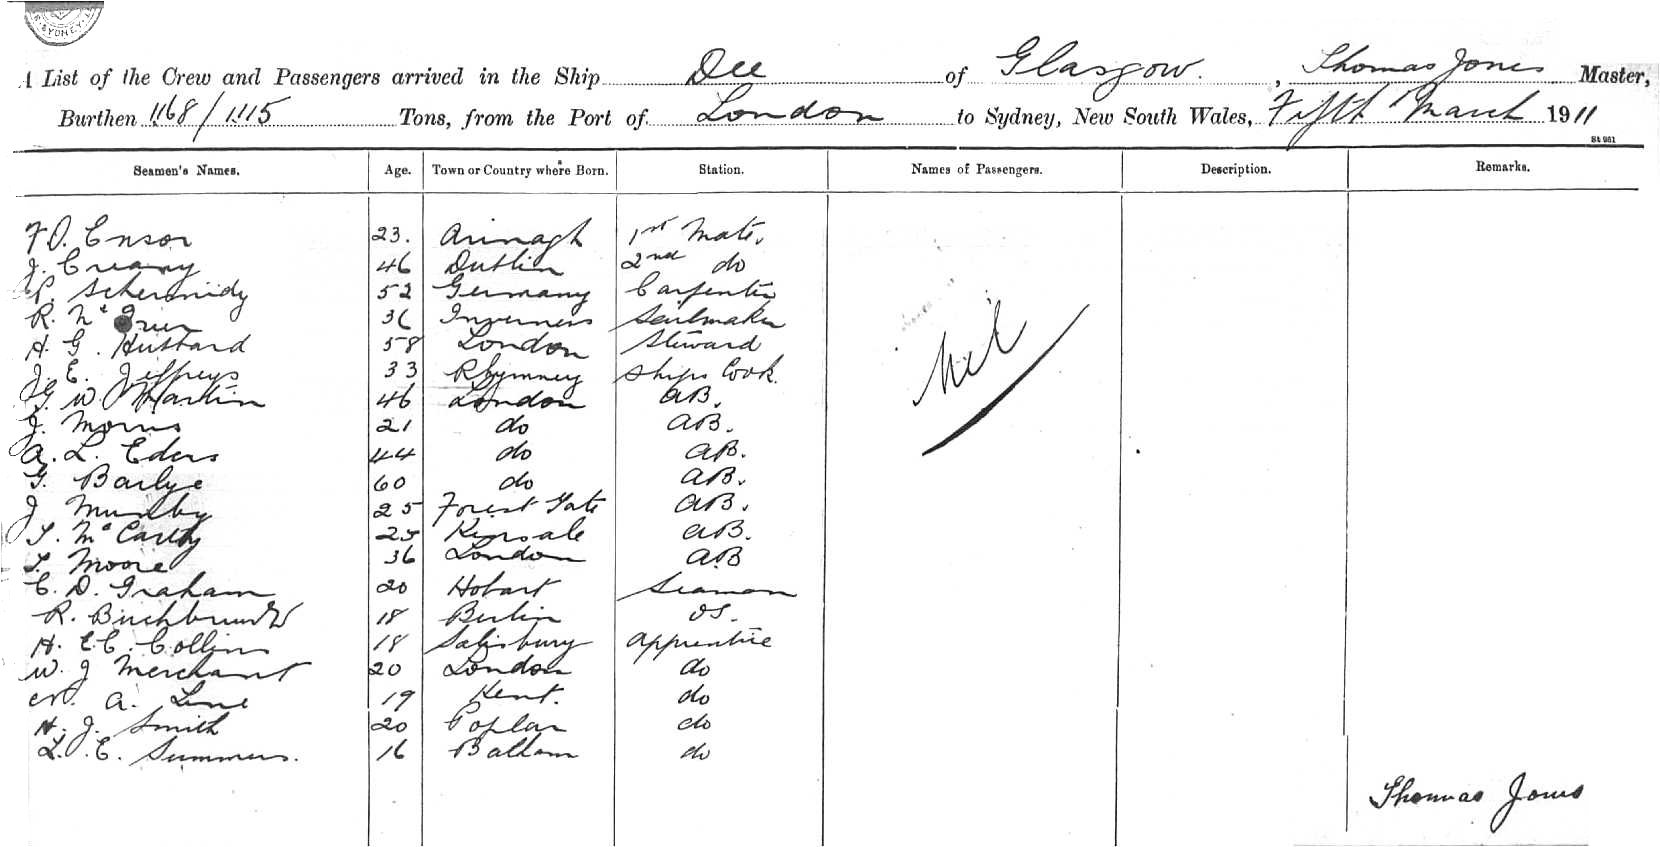 SYDNEY
A List of the Crew and Passengers arrived in the Ship Dee of Glasgow, Thomas Jones Master,
Burthen 1168/1115 Tons, from the Port of London to Sydney, New South Wales, Fifth March 1911
St 961
Seamen's Names. Age. Town or Country where Born. Station. Names of Passengers. Description. Remarks.
F. O. Ensor 23. Armagh 1st Mate.
J. Creany 46 Dublin 2nd do
Schermidy 52 Germany Carpenter
R. Mc 36 Inverness Sailmaker
H. G. Hubbard 58 London Steward
J. E. Jeffreys 33 Rhymney Ships Cook.
G. W. Martin 46 London AB.
J. Morris 21 do AB.
A. L. Eders 44 do AB.
G. Barlye 60 do AB.
J Munby 25 Forest Gate AB.
T. McCarthy 25 Kinsale AB.
T. Moore 36 London AB
C. D. Graham 20 Hobart Seaman
R. 18 Berlin OS.
H. E. C. Collins 18 Salisbury Apprentice
W. J Merchant 20 London do
A. Line 19 Kent. do
H. J. Smith 20 Poplar do
L. E. Summers. 16 Balham do
Nil
Thomas Jones